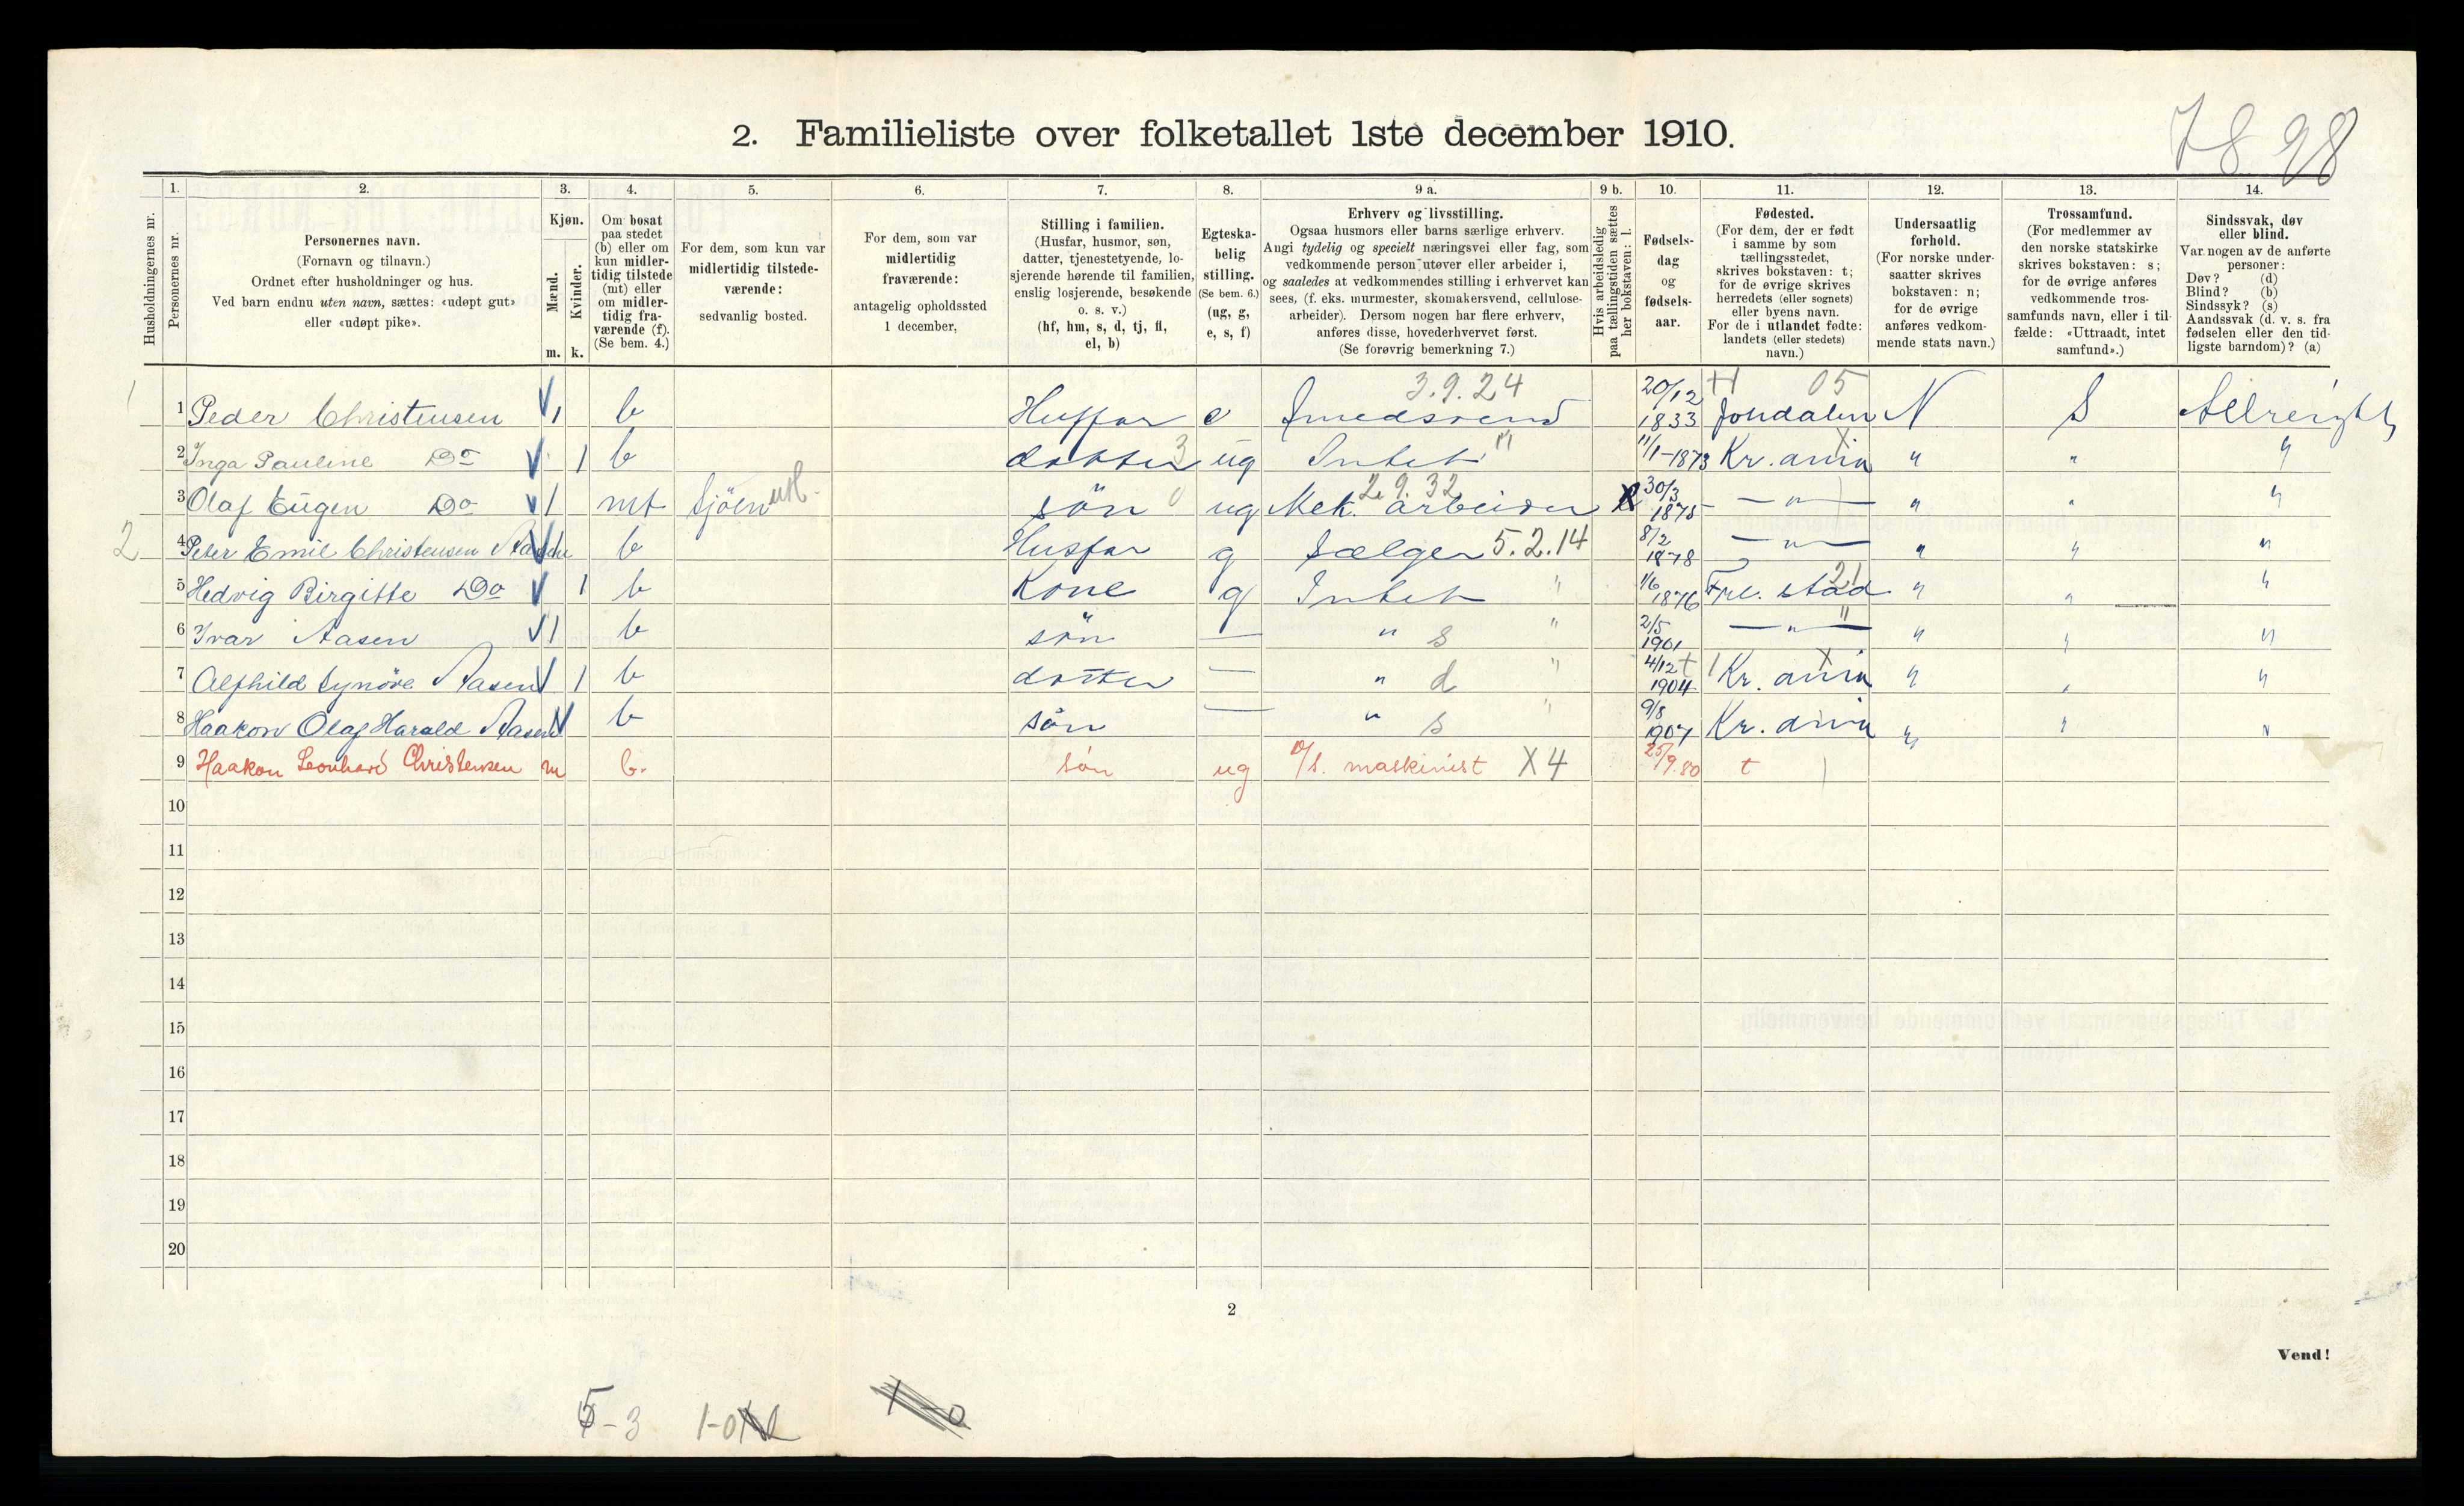 78 98
2. Familieliste over folketallet 1ste december 1910.
1. 2. 3. 4. 5. 6. 7. 8. 9 a. 9 b. 10. 11. 12. 13. 14.
Husholdningernes nr.
Personernes nr.
Personernes navn.
(Fornavn og tilnavn.)
Ordnet efter husholdninger og hus.
Ved barn endnu uten navn, sættes: «udøpt gut»
eller «udøpt pike».
Kjøn.
Mænd.
Kvinder.
m. k.
Om bosat
paa stedet
(b) eller om
kun midler-
tidig tilstede
(mt) eller
om midler-
tidig fra-
værende (f).
(Se bem. 4.)
For dem, som kun var
midlertidig tilstede-
værende:
sedvanlig bosted.
For dem, som var
midlertidig
fraværende:
antagelig opholdssted
1 december.
Stilling i familien.
(Husfar, husmor, søn,
datter, tjenestetyende, lo-
sjerende hørende til familien,
enslig losjerende, besøkende
o. s. v.)
(hf, hm, s, d, tj, fl,
el, b)
Egteska-
belig
stilling.
(Se bem. 6.)
(ug, g,
e, s, f)
Erhverv og livsstilling.
Ogsaa husmors eller barns særlige erhverv.
Angi tydelig og specielt næringsvei eller fag, som
vedkommende person utøver eller arbeider i,
og saaledes at vedkommendes stilling i erhvervet kan
sees, (f. eks. murmester, skomakersvend, cellulose-
arbeider). Dersom nogen har flere erhverv,
anføres disse, hovederhvervet først.
(Se forøvrig bemerkning 7.)
Hvis arbeidsledig
paa tællingstiden sættes
her bokstaven: l.
Fødsels-
dag
og
fødsels-
aar.
Fødested.
(For dem, der er født
i samme by som
tællingsstedet,
skrives bokstaven: t;
for de øvrige skrives
herredets (eller sognets)
eller byens navn.
For de i utlandet fødte:
landets (eller stedets)
navn.)
Undersaatlig
forhold.
(For norske under-
saatter skrives
bokstaven: n;
for de øvrige
anføres vedkom-
mende stats navn.)
Trossamfund.
(For medlemmer av
den norske statskirke
skrives bokstaven: s;
for de øvrige anføres
vedkommende tros-
samfunds navn, eller i til-
fælde: «Uttraadt, intet
samfund».)
Sindssvak, døv
eller blind.
Var nogen av de anførte
personer:
Døv? (d)
Blind? (b)
Sindssyk? (s)
Aandssvak (d. v. s. fra
fødselen eller den tid-
ligste barndom)? (a)
1 1 Peder Christensen 1 b Husfar e Smedsvend 3.9.24 20/12 1833 Jondalen 05 N S Allreight
2 Inga Pauline Do 1 b datter 3 ug Intet " 11/1-1873 Kr.ania X " " "
3 Olaf Eugen Do 1 mt Sjöen utl. sön 0 ug Mek. arbeider 2.9.32 30/3 1875 — " — " " "
2 4 Peter Emil Christensen Aasen b Husfar g Sælger 5.2.14 8/2 1878 — " — " " "
5 Hedvig Birgitte Do 1 b Kone g Intet " 1/6 1876 Fre. stad 21 " " "
6 Ivar Aasen 1 b sön — " s " 2/5 1901 — " — " " " "
7 Alfhild Synöve Aasen 1 b datter — " d " 4/12 1904 t Kr. ania X " " "
8 Haakon Olaf Harald Aasen b sön — " s " 9/8 1907 Kr. ania " " "
9 Haakon Leonhard Christensen m b. søn ug D/S. maskinist X4 25/9.80 t
10
11
12
13
14
15
16
17
18
19
20
2
Vend!
5-3 1-0
1-0